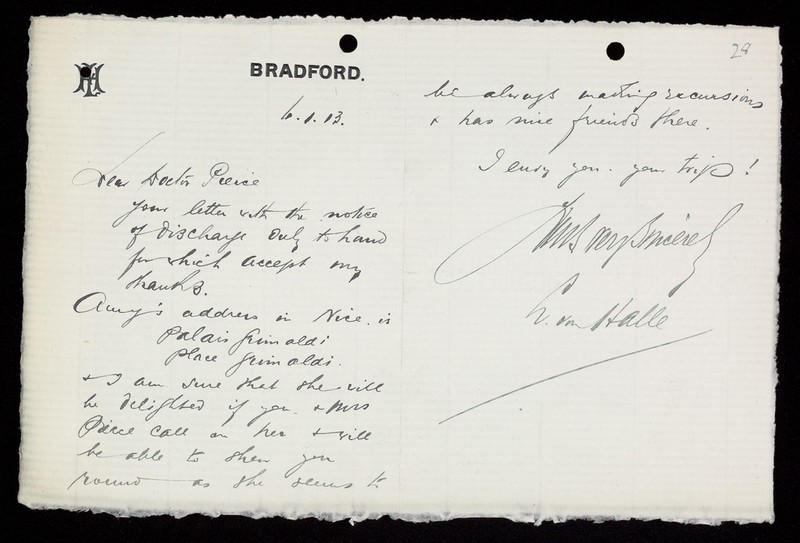 28
BRADFORD.
6.1.13.
Dear Doctor Pierce
Your letter with the notice
of discharge duly to hand
for which accept my
thanks.
Amy's address in Nice is
Palais Grimaldi
Place Grimaldi.
& I am sure that she will
be delighted if you & Mrs
Pierce call on her & will
be able to shew you
round as she seems to
be always making excursions
& has nice friends there.
I envy you your trip!
Yours very sincerely
von Halle